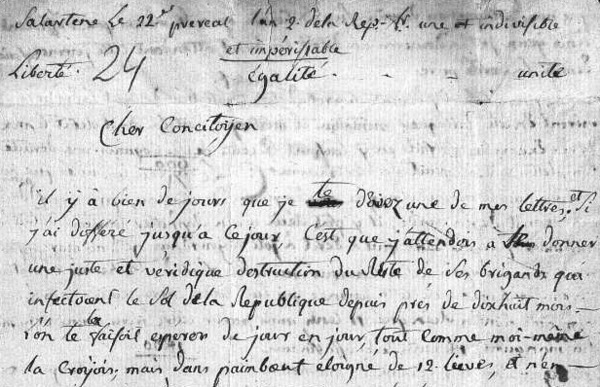 Salartene Le 22 prereal l'an 2. de la Rep. fr. une et indivisible
et impérissable
Liberté. 24 égalité. - - unité
Cher Concitoyen
il y à bien de jours que je te devoz une de mes lettres, et Si
j'ai differé jusqu'a ce jour C'est que j'attendois a donner
une juste et véridique destruction du Reste de Ses brigands qui
infectoient le Sol de la Republique depuis prés de dixhuit mois -
l'on te le faisoit esperer de jour en jour, tout comme moi-même
la Croyois, mais dans paimboeuf eloigné de 12. lieves et n'en